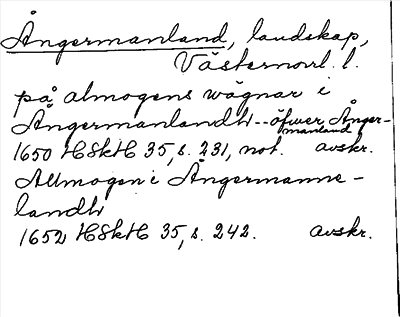 Ångermanland, landskap,
Västernorrl. l.
på almogens wägnar i
Ångermanlandh -- öfwer Ånger-
manland
1650 HSkH 35, s. 231, not. avskr.
Allmogen i Ångermanne-
landh
1652 HSkH 35, s. 242. avskr.